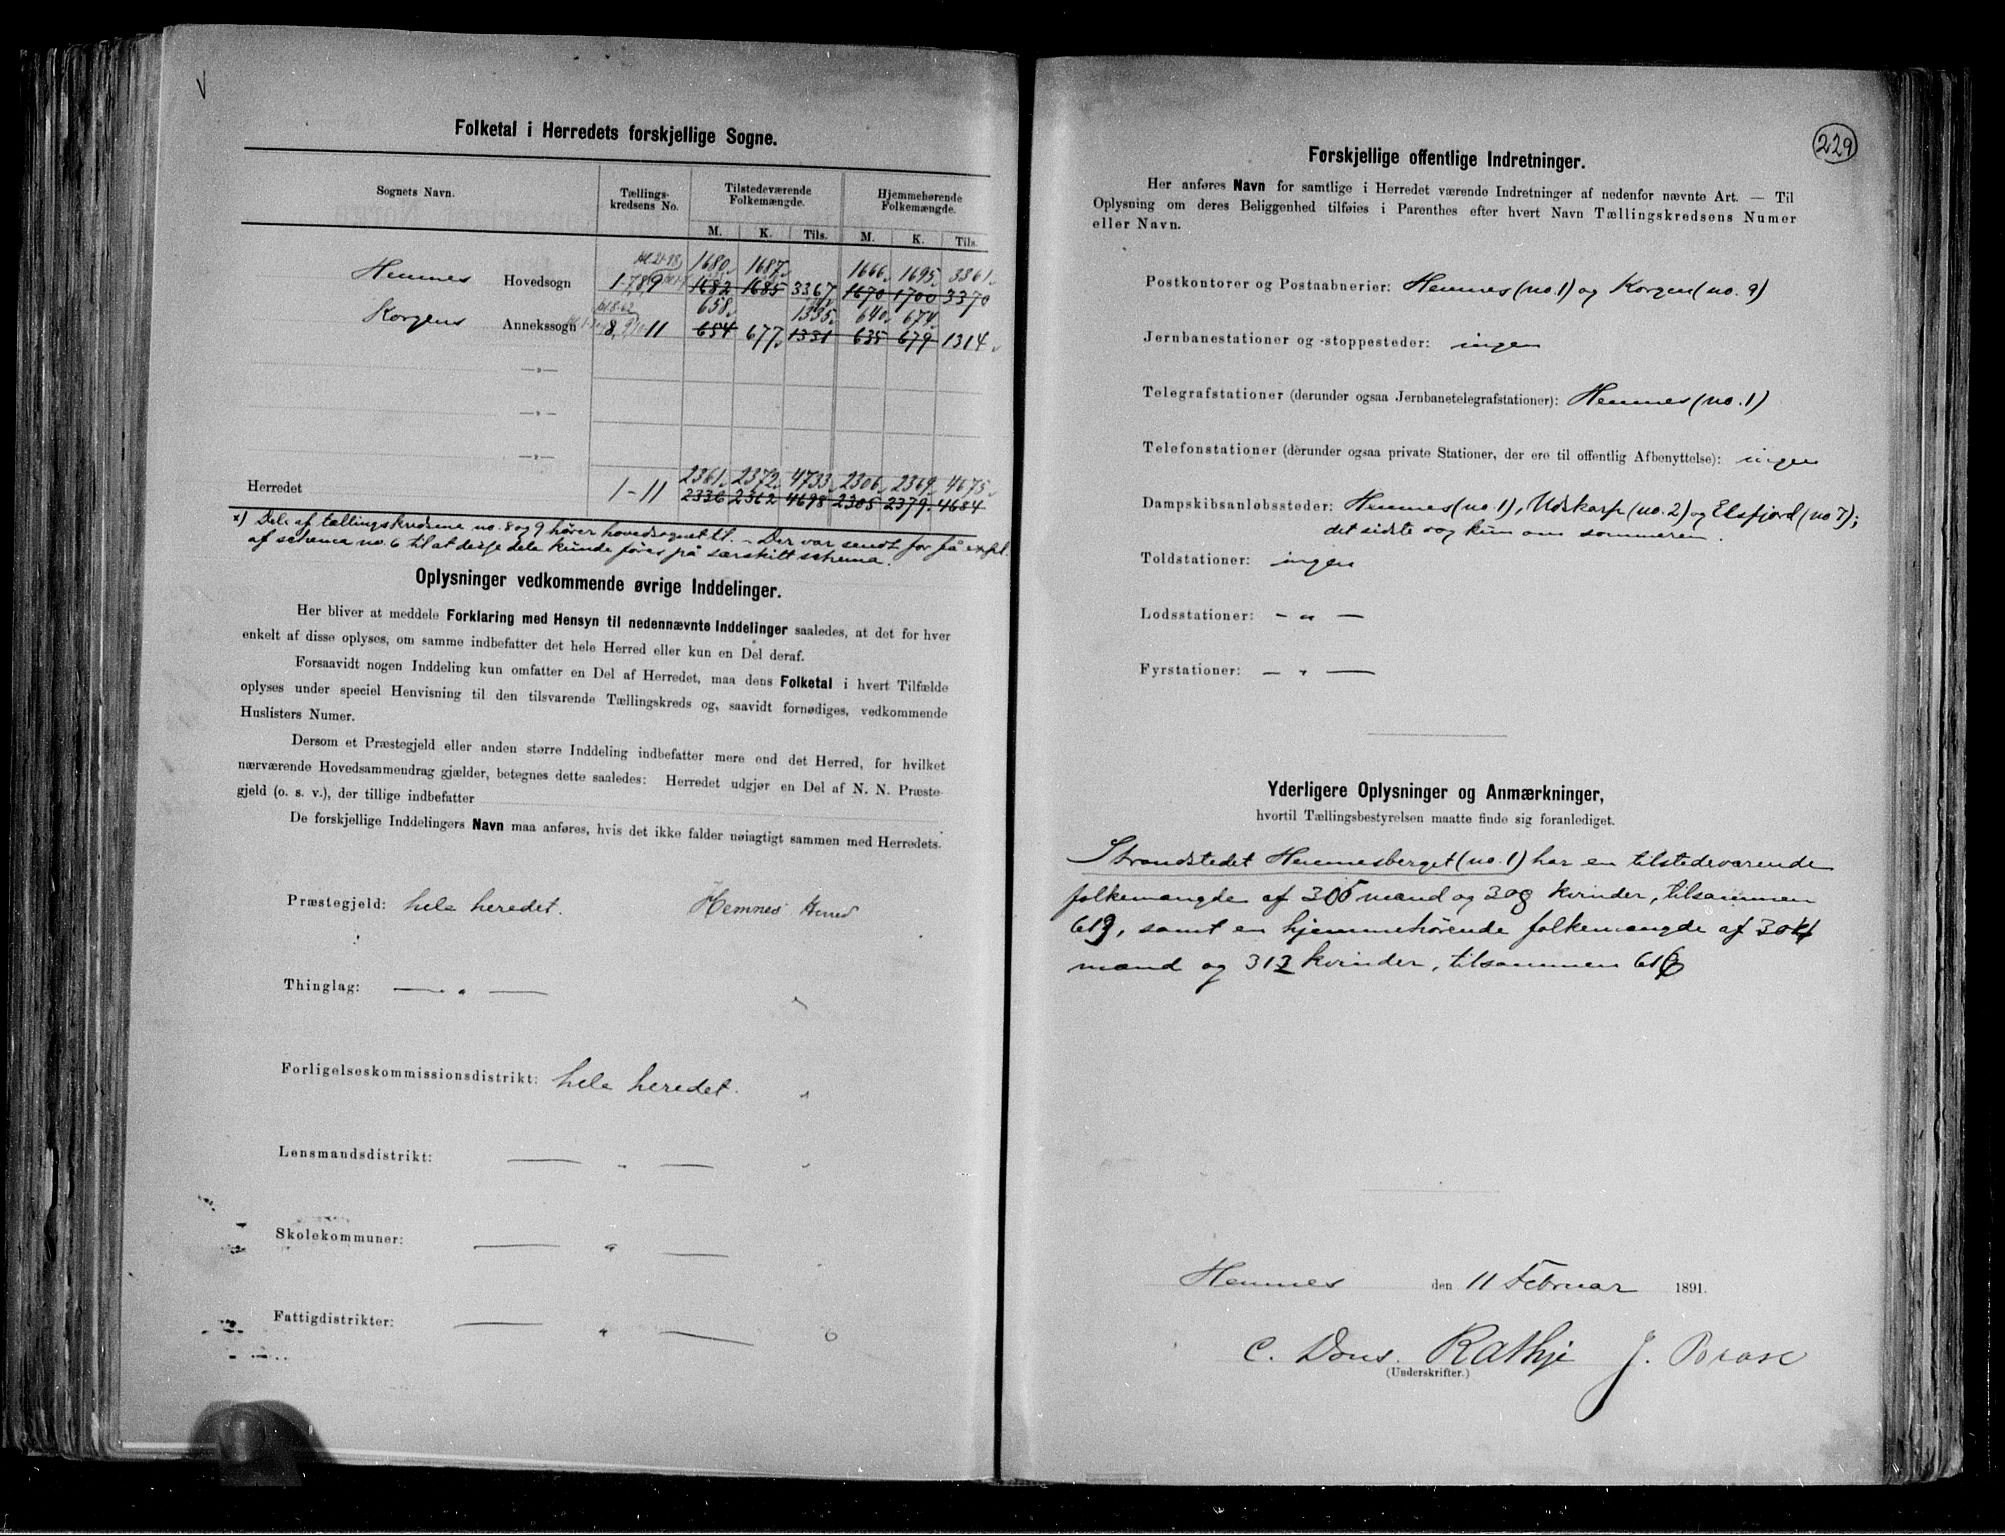 V
Folketal i Herredets forskjellige Sogne.
Sognets Navn. Tællings-kredsens No. Tilstedeværende Folkemængde. Hjemmehørende Folkemængde.
M. K. Tils. M. K. Tils.
1680 1687 1666 1695 3361
Hemnes Hovedsogn 1-7,8,9 1682 1685 3367 1670 1700 3370
658 1335 640 674
Korgens Annekssogn 8, 9, 10, 11 654 677 1331 635 679 1314
—„—
—„—
—„—
2361 2372 4733 2306 2369 4675
Herredet 1-11 2336 2362 4698 2305 2379 4684
x) Dele af tællingskredsene no. 8 og 9 hører hovedsognet til. – Der var sendt for få expl.
af schema no. 6 til at disse dele kunde føres på særskilt schema.
Oplysninger vedkommende øvrige Inddelinger.
Her bliver at meddele Forklaring med Hensyn til nedennævnte Inddelinger saaledes, at det for hver
enkelt af disse oplyses, om samme indbefatter det hele Herred eller kun en Del deraf.
Forsaavidt nogen Inddeling kun omfatter en Del af Herredet, maa dens Folketal i hvert Tilfælde
oplyses under speciel Henvisning til den tilsvarende Tællingskreds og, saavidt fornødiges, vedkommende
Huslisters Numer.
Dersom et Præstegjeld eller anden større Inddeling indbefatter mere end det Herred, for hvilket
nærværende Hovedsammendrag gjælder, betegnes dette saaledes: Herredet udgjør en Del af N. N. Præste-
gjeld (o. s. v.), der tillige indbefatter
De forskjellige Inddelingers Navn maa anføres, hvis det ikke falder nøiagtigt sammen med Herredets.
Præstegjeld: hele heredet. Hemnes Herred
Thinglag: — „ —
Forligelseskommissionsdistrikt: hele heredet. „
Lensmandsdistrikt: — „ —
Skolekommuner: — „ —
Fattigdistrikter: — „ —
229
Forskjellige offentlige Indretninger.
Her anføres Navn for samtlige i Herredet værende Indretninger af nedenfor nævnte Art. — Til
Oplysning om deres Beliggenhed tilføies i Parenthes efter hvert Navn Tællingskredsens Numer
eller Navn.
Postkontorer og Postaabnerier: Hemnes (no. 1) og Korgen (no. 9)
Jernbanestationer og -stoppesteder: ingen
Telegrafstationer (derunder ogsaa Jernbanetelegrafstationer): Hemnes (no. 1)
Telefonstationer (derunder ogsaa private Stationer, der ere til offentlig Afbenyttelse): ingen
Dampskibsanløbssteder: Hemnes (no. 1), Udskarp (no. 2) og Elsfjord (no 7);
det sidste dog kun om sommeren.
Toldstationer: ingen
Lodsstationer: — „ —
Fyrstationer: — „ —
Yderligere Oplysninger og Anmærkninger,
hvortil Tællingsbestyrelsen maatte finde sig foranlediget.
Strandstedet Hemnesberget (no. 1) har en tilstedeværende
folkemængde af 305 mænd og 308 kvinder, tilsammen
613, samt en hjemmehørende folkemængde af 304
mænd og 312 kvinder, tilsammen 616
Hemnes den 11 Februar 1891.
C. Dons. Rathje J. Brase
(Underskrifter.)